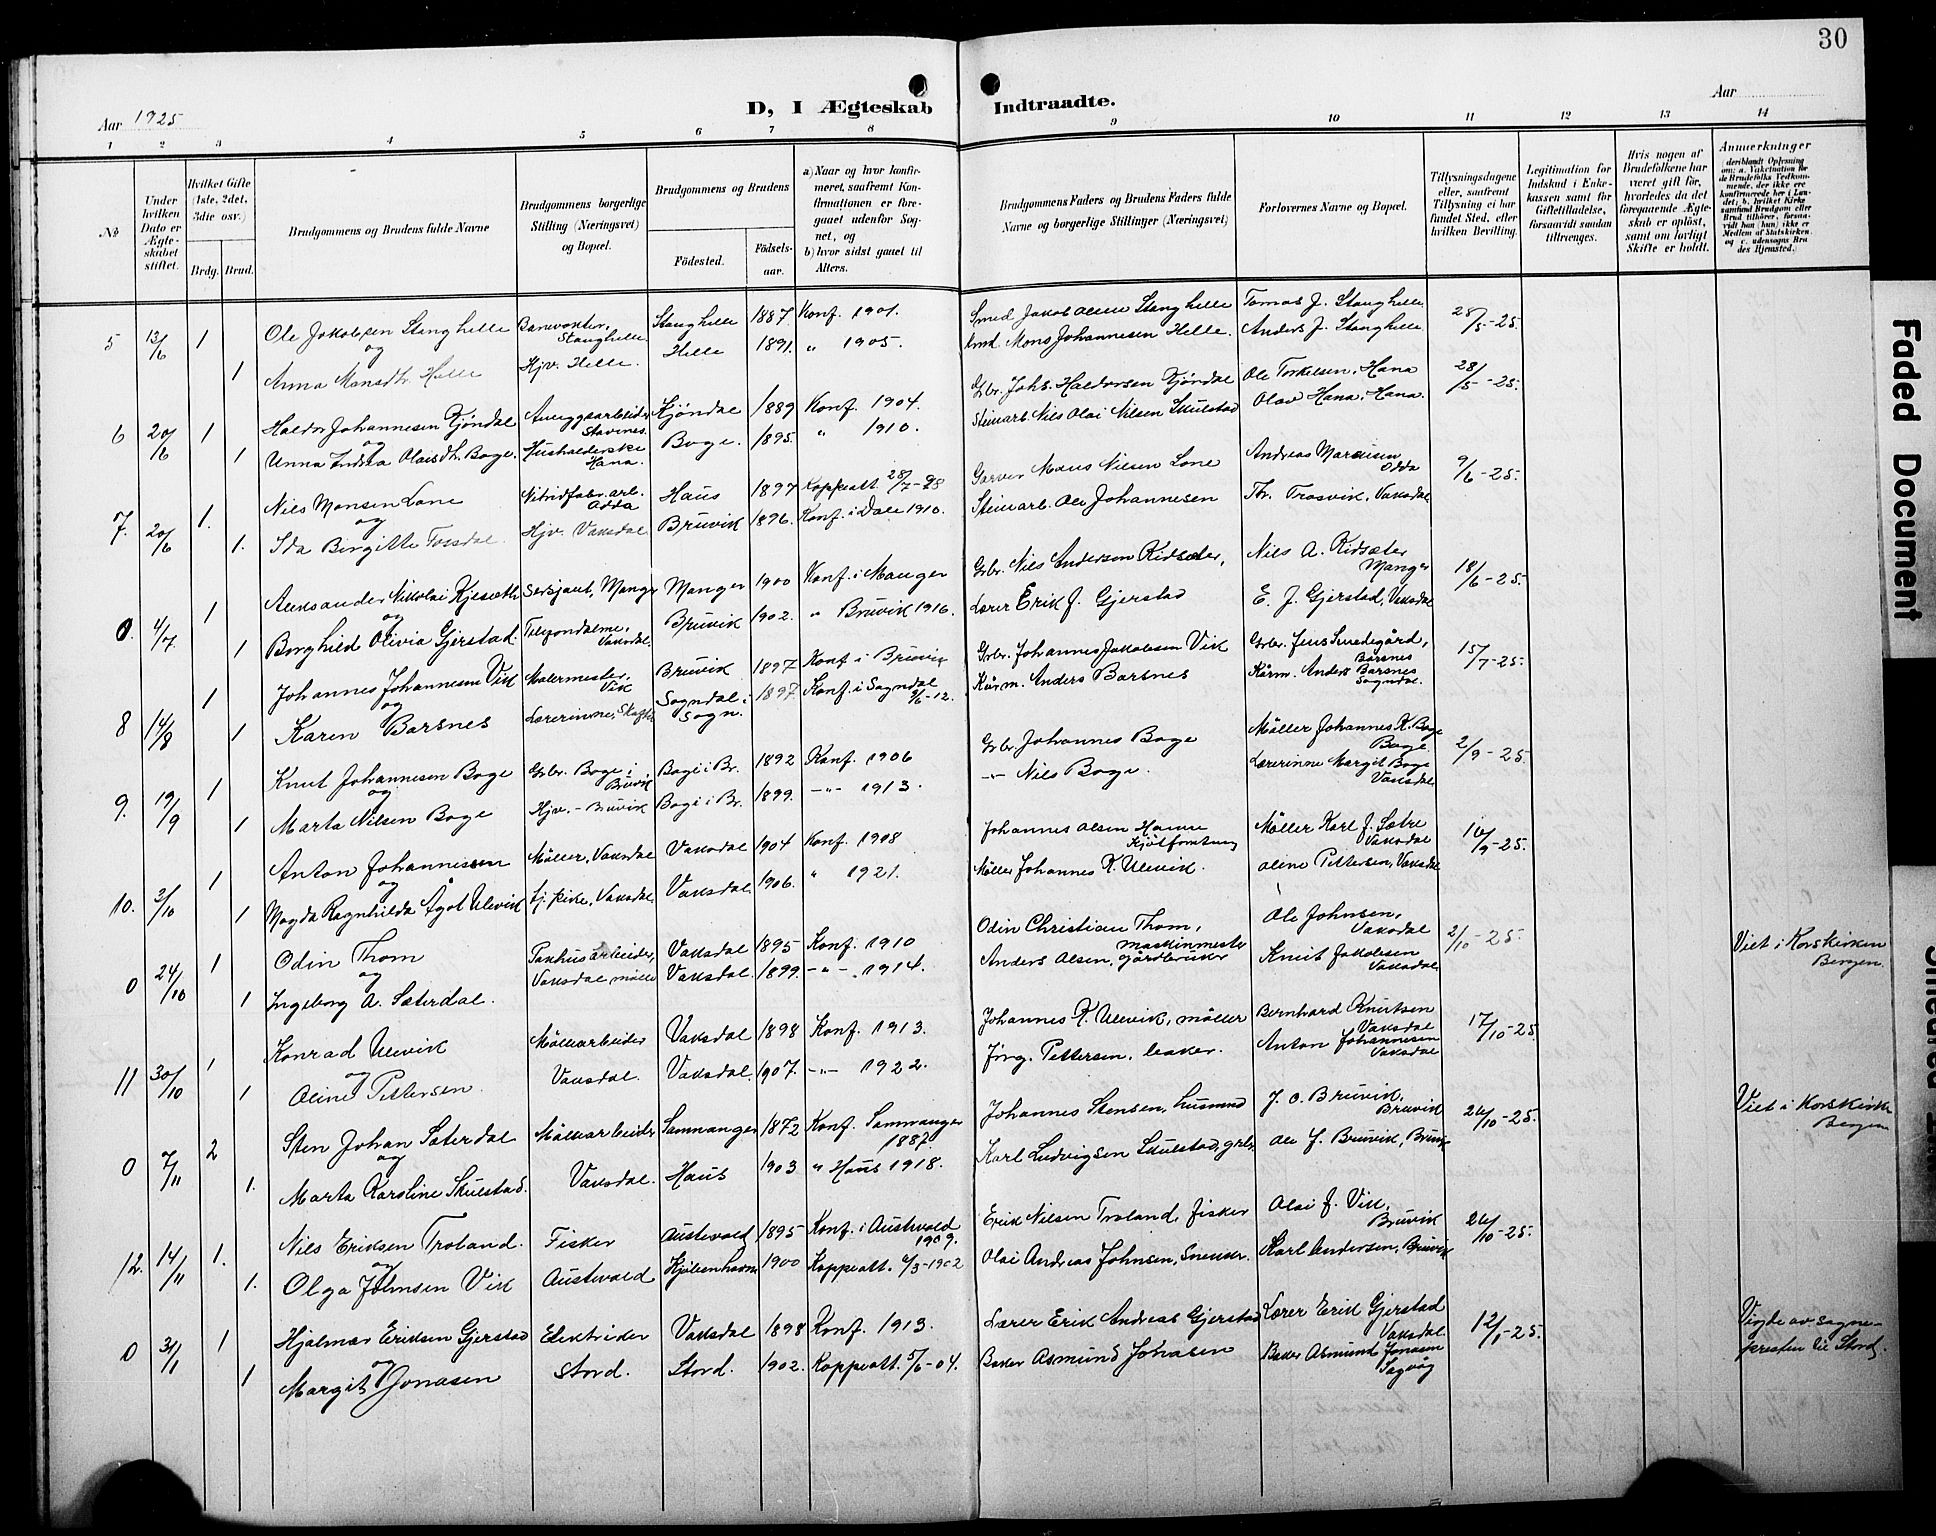 30
D, I Ægteskab Indtraadte.
Aar 1925
Aar
1 2 3 4 5 6 7 8 9 10 11 12 13 14
No
Under hvilken Dato er Ægteskabet stiftet.
Hvilket Gifte (1ste, 2det, 3die osv.)
Brdg. Brud.
Brudgommens og Brudens fulde Navne
Brudgommens borgerlige Stilling (Næringsvei) og Bopæl.
Brudgommens og Brudens
Födested.
Födselsaar.
a) Naar og hvor konfirmeret, saafremt Konfirmationen er foregaaet udenfor Sognet, og
b) hvor sidst gaaet til Alters.
Brudgommens Faders og Brudens Faders fulde Navne og borgerlige Stillinger (Næringsvei)
Forlovernes Navne og Bopæl.
Tillysningsdagene eller, saafremt Tillysning ei har fundet Sted, efter hvilken Bevilling.
Legitimation for Indskud i Enkekassen samt for Giftetilladelse, forsaavidt saadan tiltrænges.
Hvis nogen af Brudefolkene har været gift før, hvorledes da det foregaaende Ægteskab er opløst, samt om lovligt Skifte er holdt.
Anmerkninger
5 13/6 1 Ole Jakobsen Stanghelle Banevokter, Stanghelle Stanghelle 1887 Konf. 1901. Smed Jakob Olsen Stanghelle Tomas J. Stanghelle 28/5-25.
og
1 Anna Monsdtr. Helle Hjv. Helle. Helle 1891. " 1905. Mons Johannesen Helle. Anders J. Stanghelle
6 20/6 1 Haldor Johannesen Kjöndal Anleggsarbeider Stavenes Kjöndal 1889 Konf. 1904. Grbr. Johs. Haldorsen Kjöndal Ole Torkelsen, Hana 28/5-25.
og
1 Olaisdtr. Boge. Husholderske Hana. Boge. 1895. " 1910. Steinarb. Nils Olai Nilsen Skulstad Olav Hana, Hana.
7. 20/6 1. Nils Monsen Lone Nitridfabr. arb. Odda Haus 1897 Koppeatt. 28/7-98 Garver Mons Nilsen Lone Andreas Odda 9/6-25.
og
1. Ida Birgitte Tossdal. Hjv. Vaksdal Bruvik 1896. Konf. i Dale 1910. Steinarb. Ole Johannesen Th. Trosvik, Vaksdal
0. 4/7 1 Aleksander Nikolai Sersjant, Manger Manger 1900 Konf. i Manger Grbr. Nils Andersen Kidsæter, Nils A. Kidsæter Manger 18/6-25.
og
1 Borghild Olivia Gjerstad. Vaksdal. Bruvik 1902. " Bruvik 1916. Lærer Erik J. Gjerstad E. J. Gjerstad, Vaksdal
8 14/8 1 Johannes Johannesen Vik Malermester, Vik Bruvik 1897 Konf. i Bruvik Grbr. Johannes Jakobsen Vik Grbr. Jens Smedegård, Barsnes 15/7-25.
og
1 Karen Barsnes Lærerinne, Sogndal i Sogn. 1897. Konf. i Sogndal 9/6-12. Kårm. Anders Barsnes Kårm. Anders Barsnes Sogndal.
9. 19/9 1 Knut Johannesen Boge Grbr. Boge i Bruvik Boge i Br. 1892 Konf. 1906 Grbr. Johannes Boge Möller Johannes K. Boge Boge. 2/9-25.
og
1 Marta Nilsen Boge Hjv. - Bruvik Boge i Br. 1899. -"- 1913. -"- Nils Boge. Lærerinne Margit Boge Vaksdal
10. 3/10 1 Anton Johannessen Möller, Vaksdal Vaksdal 1904 Konf. 1908 Johannes Olsen Möller Karl J. Sætre Vaksdal 16/9-25.
og
1 Magda Ragnhilda Ågot Ulevik tj. pike, Vaksdal Vaksdal 1906. " 1921. Möller Johannes K. Ulevik. Oline Pettersen, Vaksdal
0 24/10 1 Odin Thom Pakhusarbeider, Vaksdal 1895 Konf. 1910 Odin Christian Thom, maskinmester Ole Johnsen, Vaksdal 2/10-25. Viet i Korskirken Bergen.
og
1 Ingeborg A. Sæterdal. Vaksdal mölle Vaksdal. 1899. -"- 1914. Anders Olsen, gårdbruker Knut Jakobsen Vaksdal
11 30/10 1 Konrad Ulevik Möllearbeider Vaksdal 1898 Konf. 1913. Johannes K. Ulevik, möller Bernhard Knutsen Vaksdal 17/10-25
og
1 Oline Pettersen. Vaksdal. Vaksdal. 1907. -"- 1922. Jörg. Pettersen, baker. Anton Johannesen Vaksdal
0 7/11 2 Sten Johan Sæterdal Möllearbeider Samnanger 1872 Konf. Samnanger 1887 Johannes Stensen, husmand J. O. Bruvik, Bruvik 26/10-25. Viet i Korskirke Bergen
og
1. Marta Karoline Skulstad. Vaksdal. Haus 1903 " Haus 1918. Karl Ludvigsen Skulstad, grbr. Ole J. Bruvik, Bruvik
12. 14/11 1. Nils Eriksen Troland. Fisker Austevold 1895 Konf. i Austevold 1909. Erik Nilsen Troland, fisker Olai J. Vik, Bruvik 26/10-25.
og
1. Olga Johnsen Vik Austevold Kjöbenhavn 1900 Koppeatt. 4/3-1902 Olai Andreas Johnsen, Snekker. Karl Andersen, Bruvik
0 31/1 1 Hjalmar Eriksen Gjerstad Elektriker Vaksdal 1898 Konf. 1913. Lærer Erik Andreas Gjerstad Lærer Erik Gjerstad Vaksdal. 12/1-25. Vigde av sognepresten til Stord.
og
1 Margit Jonasen Stord. Stord. 1902. Koppeatt. 5/6-04. Baker Asmund Jonasen Baker Asmund Jonasen Sagvåg
Faded Document